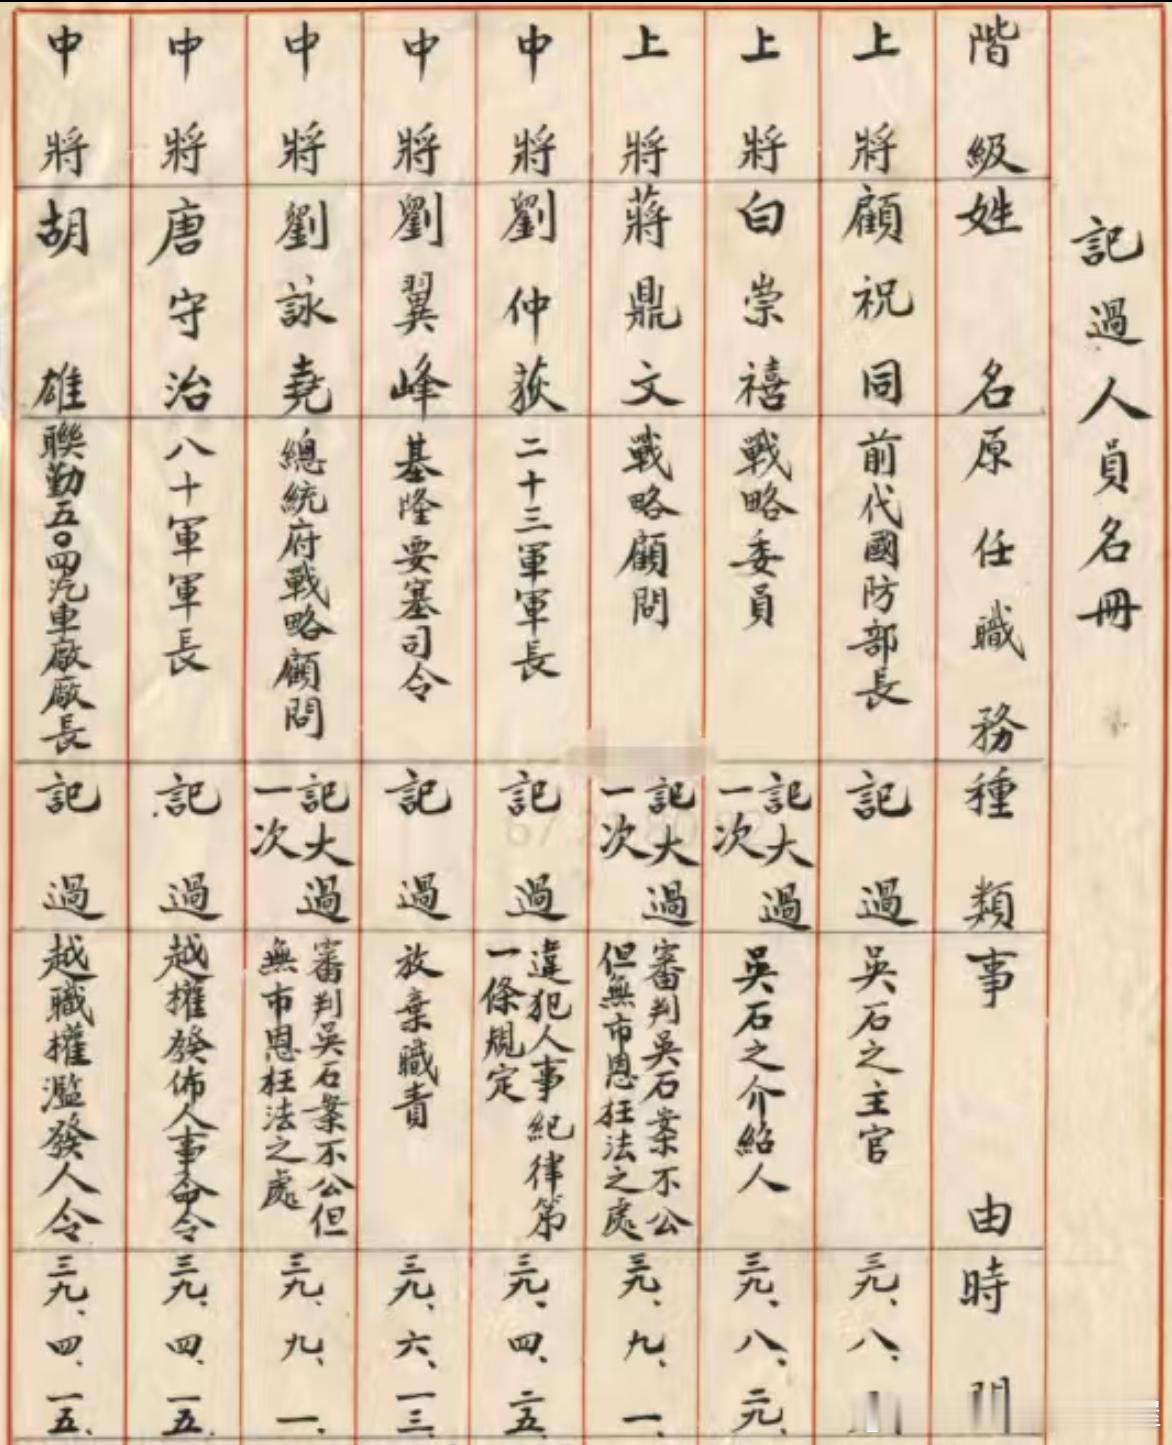 記過人員名冊
階級 姓名 原任職務 種類 事由 時間
上將 顧祝同 前代國防部長 記過 吳石之主官 三九、八、
上將 白崇禧 戰略委員 記大過一次 吳石之介紹人 三九、八、元、
上將 蔣鼎文 戰略顧問 記大過一次 審判吳石案不公但無市恩枉法之處 三九、九、一、
中將 劉仲荻 二十三軍軍長 記過 違犯人事紀律第一條規定 三九、四、二五、
中將 劉翼峰 基隆要塞司令 記過 放棄職責 三九、六、一三、
中將 劉詠堯 總統府戰略顧問 記大過一次 審判吳石案不公但無市恩枉法之處 三九、九、一、
中將 唐守治 八十軍軍長 記過 越權發佈人事命令 三九、四、一五、
中將 胡雄 聯勤五〇四汽車廠廠長 記過 越職權濫發人令 三九、四、一五、